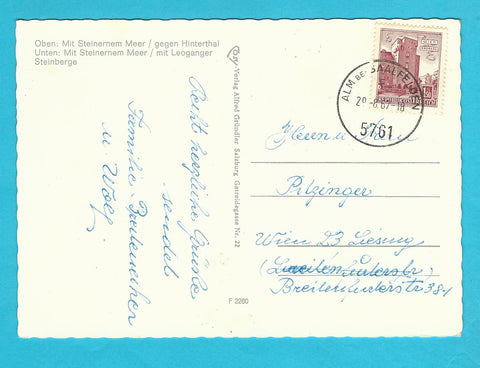 Oben: Mit Steinernem Meer / gegen Hinterthal
Unten: Mit Steinernem Meer / mit Leoganger
Steinberge
Verlag Alfred Gründler Salzburg Getreidegasse Nr. 22
F 2260
Recht herzliche Grüsse
sendet
Familie
u Wolf.
ALM BEI SAALFELDEN
5761
REPUBLIK ÖSTERREICH
Herrn u
Pilzinger
Wien 23 Liesing
Breitenfurterstr 384